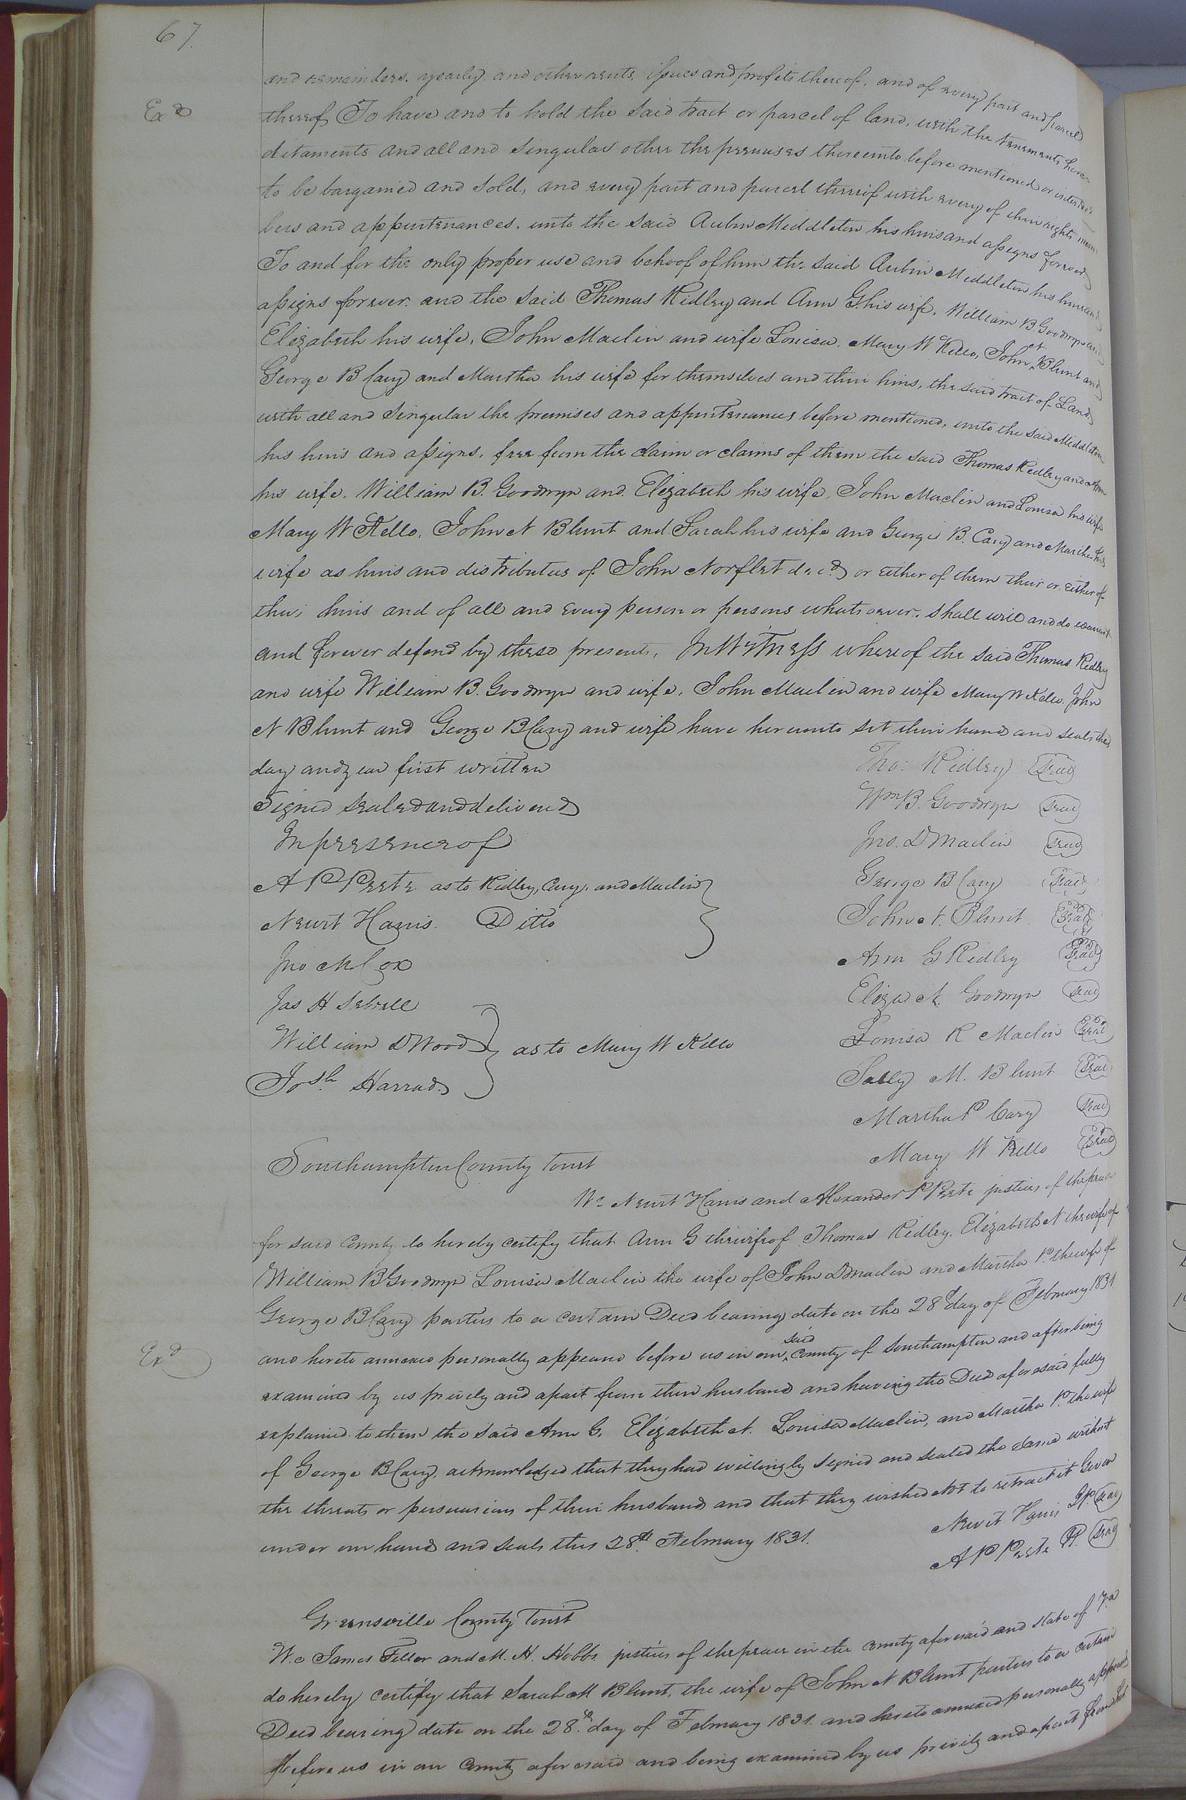 67.
and remainders, yearly and other rents, issues and profits thereof, and of every part and parcel
Exd
thereof To have and to hold the said tract or parcel of land, with the tenements here-
ditaments and all and singular other the premises thereunto before mentioned or intended
to be bargained and sold, and every part and parcel thereof with every of their rights mem
bers and appurtenances, unto the said Aubin Middleton his heirs and assigns forever
To and for the only proper use and behoof of him the said Aubin Middleton his heirs and
assigns forever. and the said Thomas Ridley and Ann G his wife, William B Goodwyn and
Elizabeth his wife, John Maclin and wife Louisa, Mary W Kello, John N Blunt and
George B Cary and Martha his wife for themselves and their heirs, the said tract of Land,
with all and singular the premises and appurtenances before mentioned, unto the said Middleton
his heirs and assigns, free from the claim or claims of them the said Thomas Ridley and Ann
his wife. William B. Goodwyn and Elizabeth his wife, John Maclin and Louisa his wife
Mary W Kello, John N Blunt and Sarah his wife and George B. Cary and Martha his
wife as heirs and distributees of John Norfleet decd or either of them their or either of
their heirs and of all and every person or persons whatsoever, shall will and do warrant
and forever defend by these presents, In Witness whereof the said Thomas Ridley
and wife William B. Goodwyn and wife, John Maclin and wife Mary W Kello John
N Blunt and George B Cary and wife have hereunto set their hand and seals the
day and year first written
Tho: Ridley seal
Signed sealed and delivered
Wm B. Goodwyn seal
In presence of
Jno. D Maclin seal
A P Peete as to Ridley, Cary, and Maclin
George B Cary seal
Newit Harris Ditto
John N. Blunt seal
Jno M Cox
Ann G Ridley seal
Jas H
Elizath Goodwyn seal
William D Wood as to Mary W Kello
Louisa R Maclin seal
Josh Harrad
Sally M. Blunt seal
Martha P Cary seal
Mary W Kello seal
Southampton County Towit
We Newit Harris and Alexander P Peete justices of the peace
for said County do hereby certify that Ann G the wife of Thomas Ridley, Elizabeth N the wife of
William B Goodwyn Louisa Maclin the wife of John D Maclin and Martha P. the wife of
George B Cary parties to a certain Deed bearing date on the 28th day of February 1831
Exd
and hereto annexed personally appeared before us in our said County of Southampton and after being
examined by us privily and apart from their husband and having the Deed aforesaid fully
explained to them the said Ann G, Elizabeth N. Louisa Maclin, and Martha P. the wife
of George B Cary, acknowledged that they had willingly signed and sealed the same without
the threats or persuasions of their husband and that they wished not to retract it Given
under our hand and seals this 28th February 1831.
Newit Harris JP seal
A P Peete JP. seal
Greensville County Towit
We James and M. H. Hobbs justices of the peace in the County aforesaid and state of Va
do hereby certify that Sarah M Blunt, the wife of John N Blunt parties to a certain
Deed bearing date on the 28th day of February 1831 and hereto annexed personally appeared
before us in our County aforesaid and being examined by us privily and apart from her